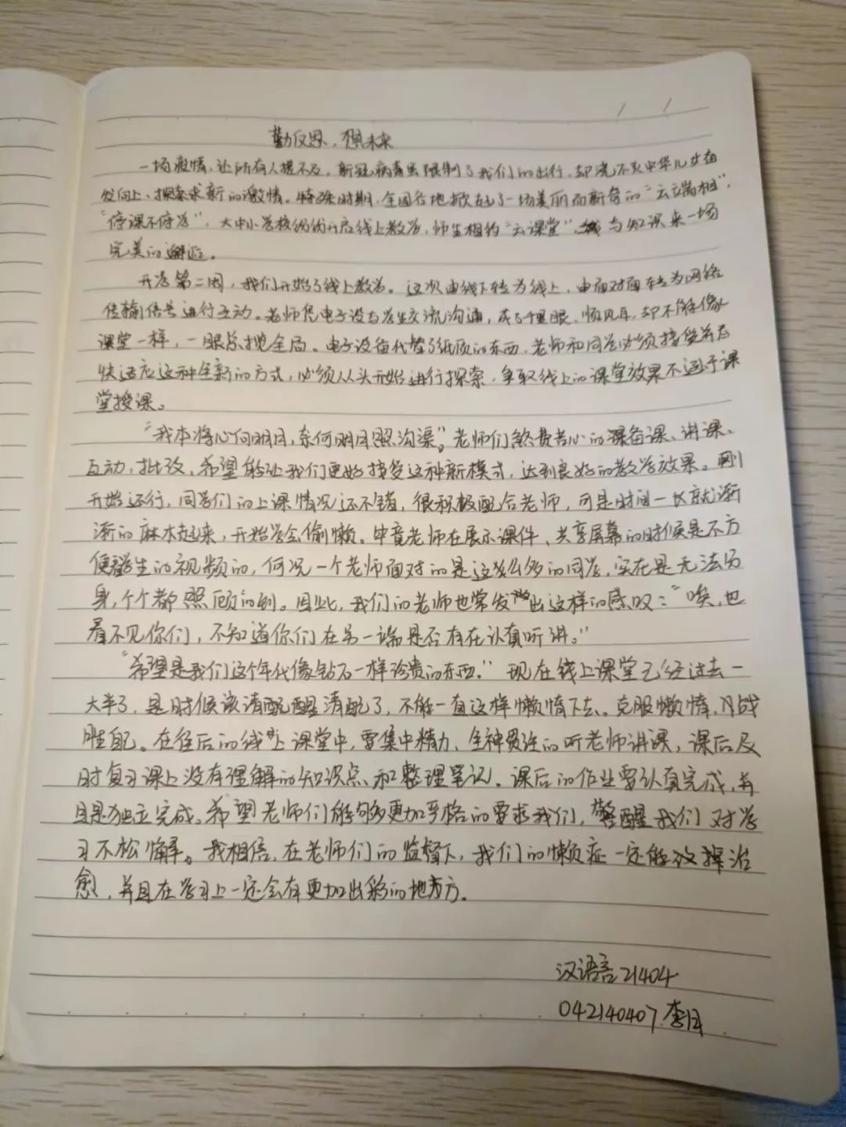 勤反思，想未来
一场疫情，让所有人措不及，新冠病毒虽限制了我们的出行，却浇不灭中华儿女在
发向上、探索求新的激情。特殊时期，全国各地掀起了一场美丽而新奇的“云端相”，
“停课不停学”，大中小学校纷纷开启线上教学，师生相约“云课堂”，与知识来一场
完美的邂逅。
开学第二周，我们开始了线上教学。这次由线下转为线上，由面对面转为网络
传输信号进行互动。老师凭电子设与学生交流沟通，成了千里眼、顺风耳，却不能像
课堂一样，一眼总揽全局。电子设备代替了纸质的东西，老师和同学必须接受并尽
快适应这种全新的方式，必须从头开始进行探索，争取线上的课堂效果不逊于课
堂授课。
“我本将心向明月，奈何明月照沟渠”。老师们煞费苦心的课备课、讲课、
互动，批改，希望能让我们更好接受这种新模式，达到良好的教学效果。刚
开始还行，同学们的上课情况还不错，很积极配合老师，可是时间一长就渐
渐的麻木起来，开始学会偷懒。毕竟老师在展示课件、共享屏幕的时候是不方
便学生的视频的，何况一个老师面对的是这么多的同学，实在是无法分
身，个个都照顾的到。因此，我们的老师也常发出这样的感叹：“唉，也
看不见你们，不知道你们在另一端是否有在认真听讲。”
“希望是我们这个年代像钻石一样珍贵的东西。”现在线上课堂已经过去一
大半了，是时候该清醒清醒了，不能一直这样懒惰下去。克服懒惰，战
胜自己。在往后的线上课堂中，要集中精力、全神贯注的听老师讲课，课后及
时复习课上没有理解的知识点和整理笔记。课后的作业要认真完成，并
且是独立完成。希望老师们能够更加严格的要求我们，警醒我们对学
习不松懈。我相信，在老师们的监督下，我们的懒症一定能改掉治
愈，并且在学习上一定会有更加出彩的地方。
汉语言21404
042140407 李月